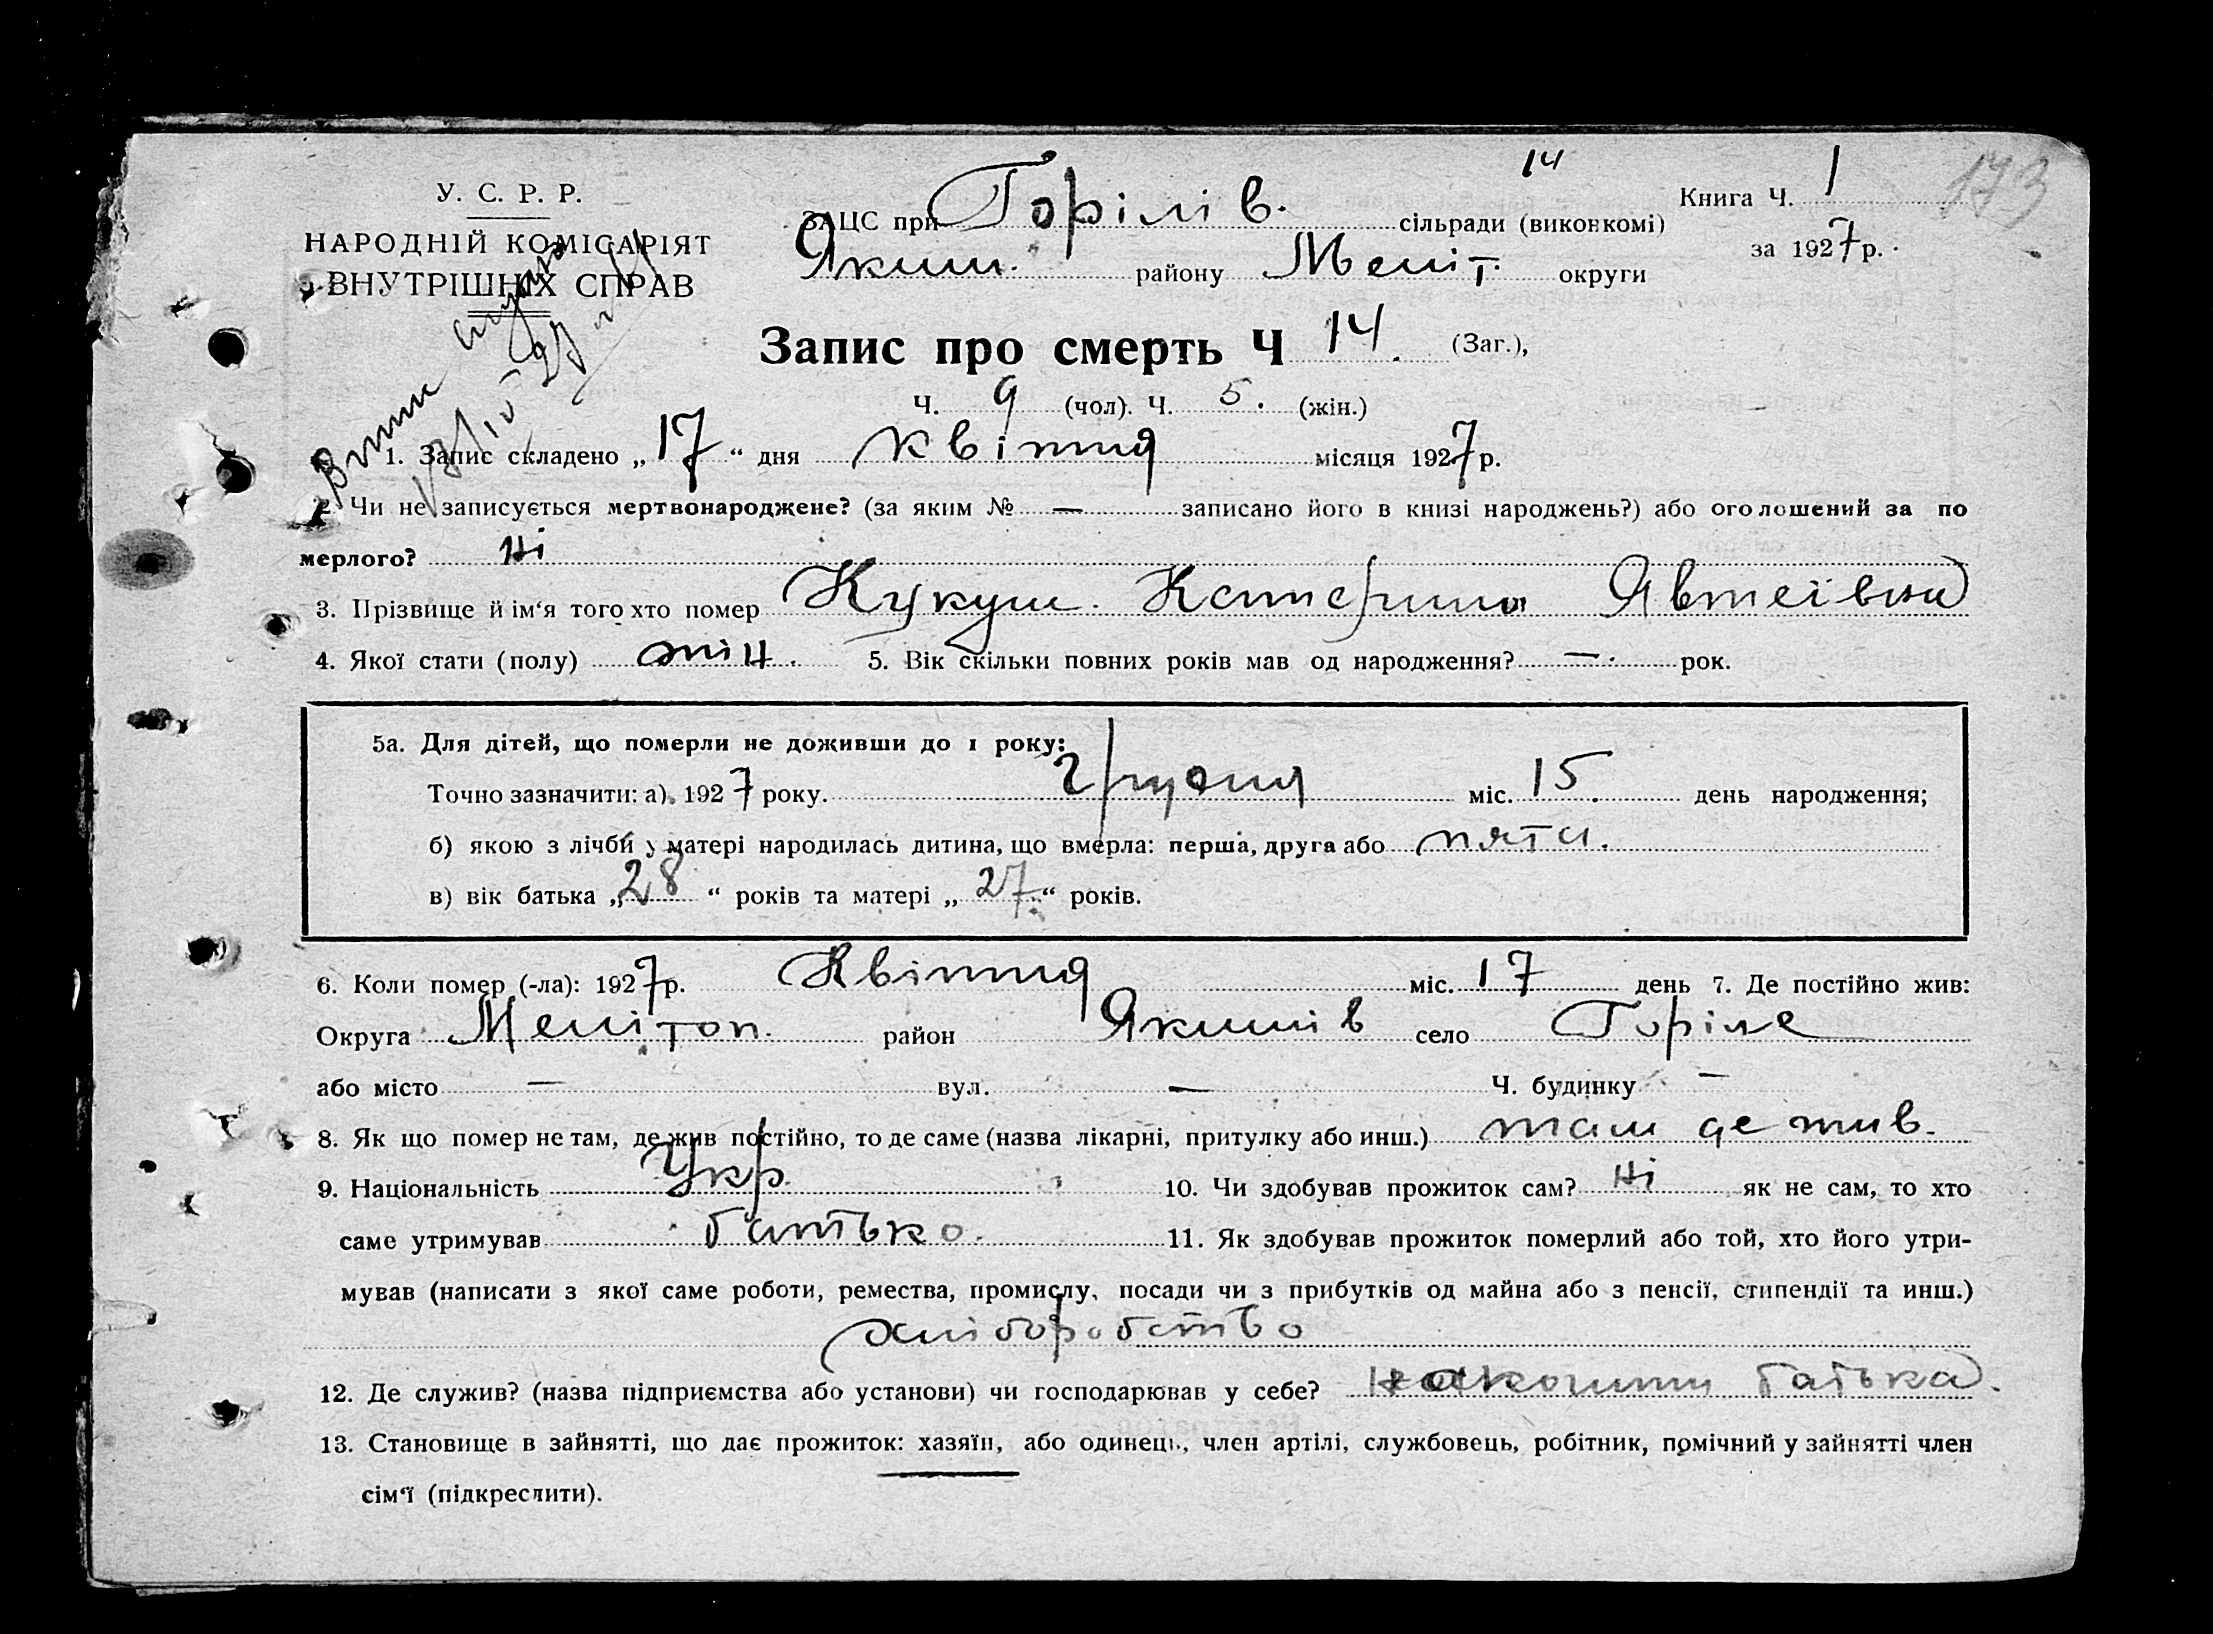 173
14
У. С. Р. Р.
НАРОДНІЙ КОМІСАРІЯТ
ВНУТРІШНІХ СПРАВ
ЗАЦС при Горілів. сільради (виконкомі)
Книга Ч. 1
Яким. району Меліт. округи
за 1927 р.
Запис про смерть Ч 14. (Заг.),
Ч. 9 (чол). Ч. 5. (жін.)
1. Запис складено „17“ дня квітня місяця 1927 р.
2. Чи не записується мертвонароджене? (за яким № — записано його в книзі народжень?) або оголошений за по
мерлого? Ні
3. Прізвище й ім‘я того хто помер Кукуш. Катерина Явтеївна
4. Якої стати (полу) жін. 5. Вік скільки повних років мав од народження? — рок.
5а. Для дітей, що померли не доживши до 1 року:
Точно зазначити: а). 1927 року. грудня міс. 15. день народження;
б) якою з лічби у матері народилась дитина, що вмерла: перша, друга або пята.
в) вік батька „28“ років та матері „27“ років.
6. Коли помер (-ла): 1927 р. Квітня міс. 17 день 7. Де постійно жив:
Округа Мелітоп. район Якимів село Горіле
або місто — вул. — Ч. будинку —
8. Як що помер не там, де жив постійно, то де саме (назва лікарні, притулку або инш.) там де жив.
9. Національність Укр. 10. Чи здобував прожиток сам? Ні як не сам, то хто
саме утримував батько. 11. Як здобував прожиток померлий або той, хто його утри-
мував (написати з якої саме роботи, ремества, промислу, посади чи з прибутків од майна або з пенсії, стипендії та инш.)
хліборобство
12. Де служив? (назва підприємства або установи) чи господарював у себе? на кошти батька.
13. Становище в зайнятті, що дає прожиток: хазяїн, або одинець, член артілі, службовець, робітник, помічний у зайнятті член
сім‘ї (підкреслити).